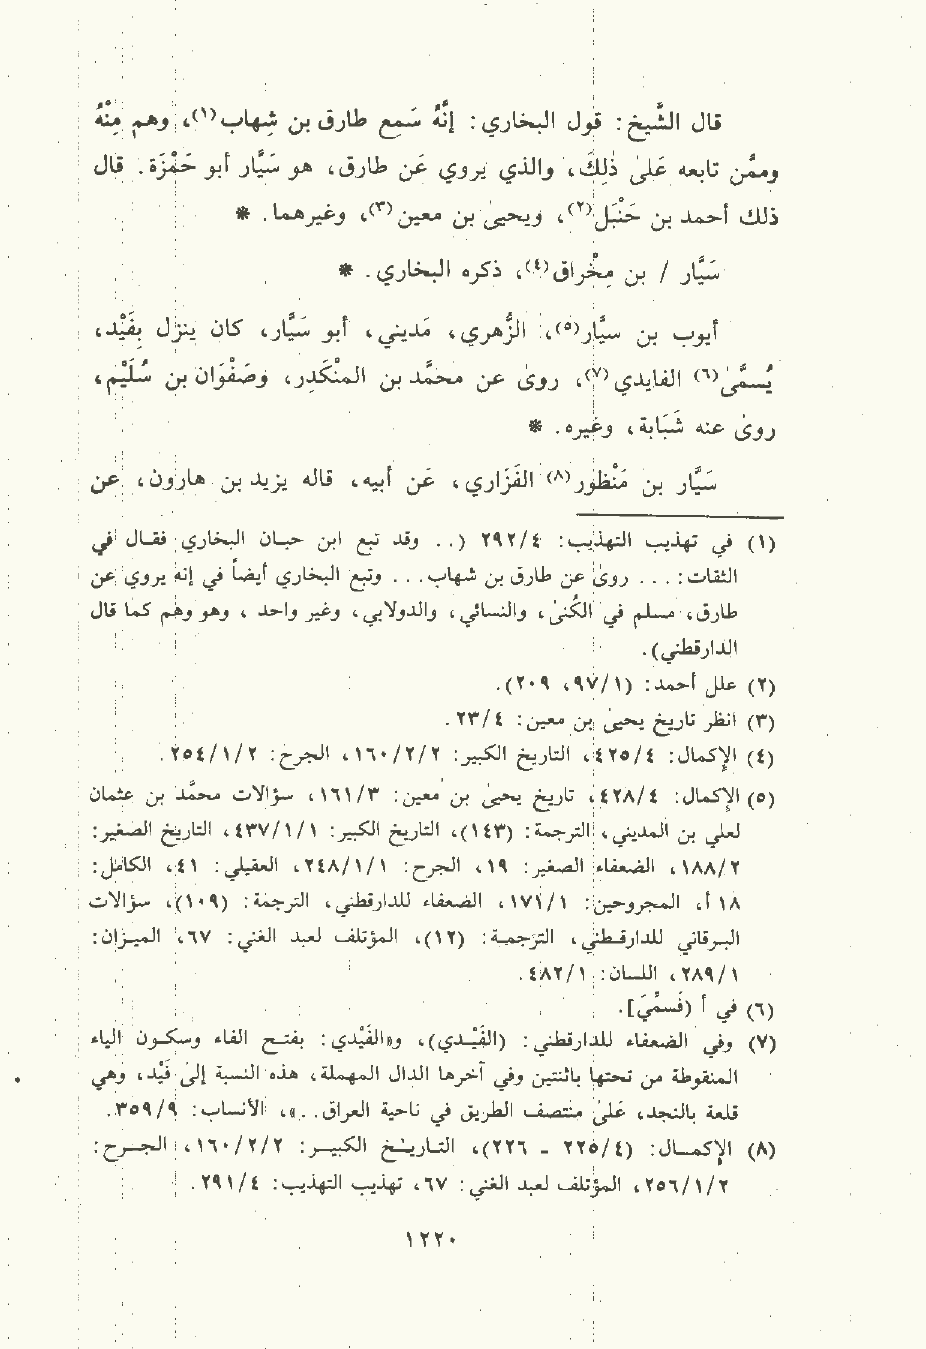 قال الشَّيخ : قول البخاري : إنَّهُ سَمع طارق بن شِهاب(١)، وهم مِنْهُ
وممَّن تابعه عَلىٰ ذلِكَ ، والذي يروي عَن طارق ، هو سَيَّار أبو حَمْزَة . قال
ذلك أحمد بن حَنْبَل(٢)، ويحيىٰ بن معين(٣)، وغيرهما . *
سَيَّار / بن مِخْراق(٤)، ذكره البخاري . *
أيوب بن سيَّار(٥)، الزُّهري ، مَديني ، أبو سَيَّار ، كان ينزل بِفَيْد ،
يُسمَّىٰ(٦) الفايدي(٧)، روىٰ عن محمَّد بن المنْكَدِر ، وصَفْوَان بن سُلَيْم ،
روىٰ عنه شَبَابة ، وغيره . *
سَيَّار بن مَنْظور(٨) الفَزَاري ، عَن أبيه ، قاله يزيد بن هارون ، عن
(١) في تهذيب التهذيب : ٢٩٢/٤ ( . . وقد تبع ابن حبـان البخاري فقـال في
الثقات : . . . روىٰ عن طارق بن شهاب . . . وتبع البخاري أيضاً في إنه يروي عن
طارق ، مسلم في الكُنىٰ ، والنسائي ، والدولابي ، وغير واحد ، وهو وهم كما قال
الدارقطني ) .
(٢) علل أحمد : (٩٧/١، ٢٠٩) .
(٣) انظر تاريخ يحيىٰ بن معين : ٢٣/٤ .
(٤) الإكمال : ٤٢٥/٤ ، التاريخ الكبير : ١٦٠/٢/٢ ، الجرح : ٢٥٤/١/٢ .
(٥) الإكمال : ٤٢٨/٤ ، تاريخ يحيىٰ بن معين : ١٦١/٣ ، سؤالات محمَّد بن عثمان
لعلي بن المديني ، الترجمة : (١٤٣)، التاريخ الكبير : ٤٣٧/١/١ ، التاريخ الصغير :
١٨٨/٢ ، الضعفاء الصغير : ١٩ ، الجرح : ٢٤٨/١/١ ، العقيلي : ٤١ ، الكامل :
١٨ أ ، المجروحين : ١٧١/١ ، الضعفاء للدارقطني ، الترجمة : (١٠٩)، سؤالات
البـرقاني للدارقـطني ، الترجمـة : (١٢)، المؤتلف لعبد الغني : ٦٧ ، الميـزان :
٢٨٩/١ ، اللسـان : ٤٨٢/١ .
(٦) في أ (فَسمِّيَ] .
(٧) وفي الضعفاء للدارقطني : (الفَيْـدي)، و«الفَيْدي : بفتـح الفاء وسكـون الياء
المنقوطة من تحتها باثنتين وفي آخرها الدال المهملة ، هذه النسبة إلىٰ فَيْد ، وهي
قلعة بالنجد ، علىٰ منتصف الطريق في ناحية العراق . . »، الأنساب : ٣٥٩/٩ .
(٨) الإكمـال : (٢٢٥/٤ - ٢٢٦)، التـاريـخ الكبيـر : ١٦٠/٢/٢ ، الجـرح :
٢٥٦/١/٢ ، المؤتلف لعبد الغني : ٦٧ ، تهذيب التهذيب : ٢٩١/٤ .
١٢٢٠